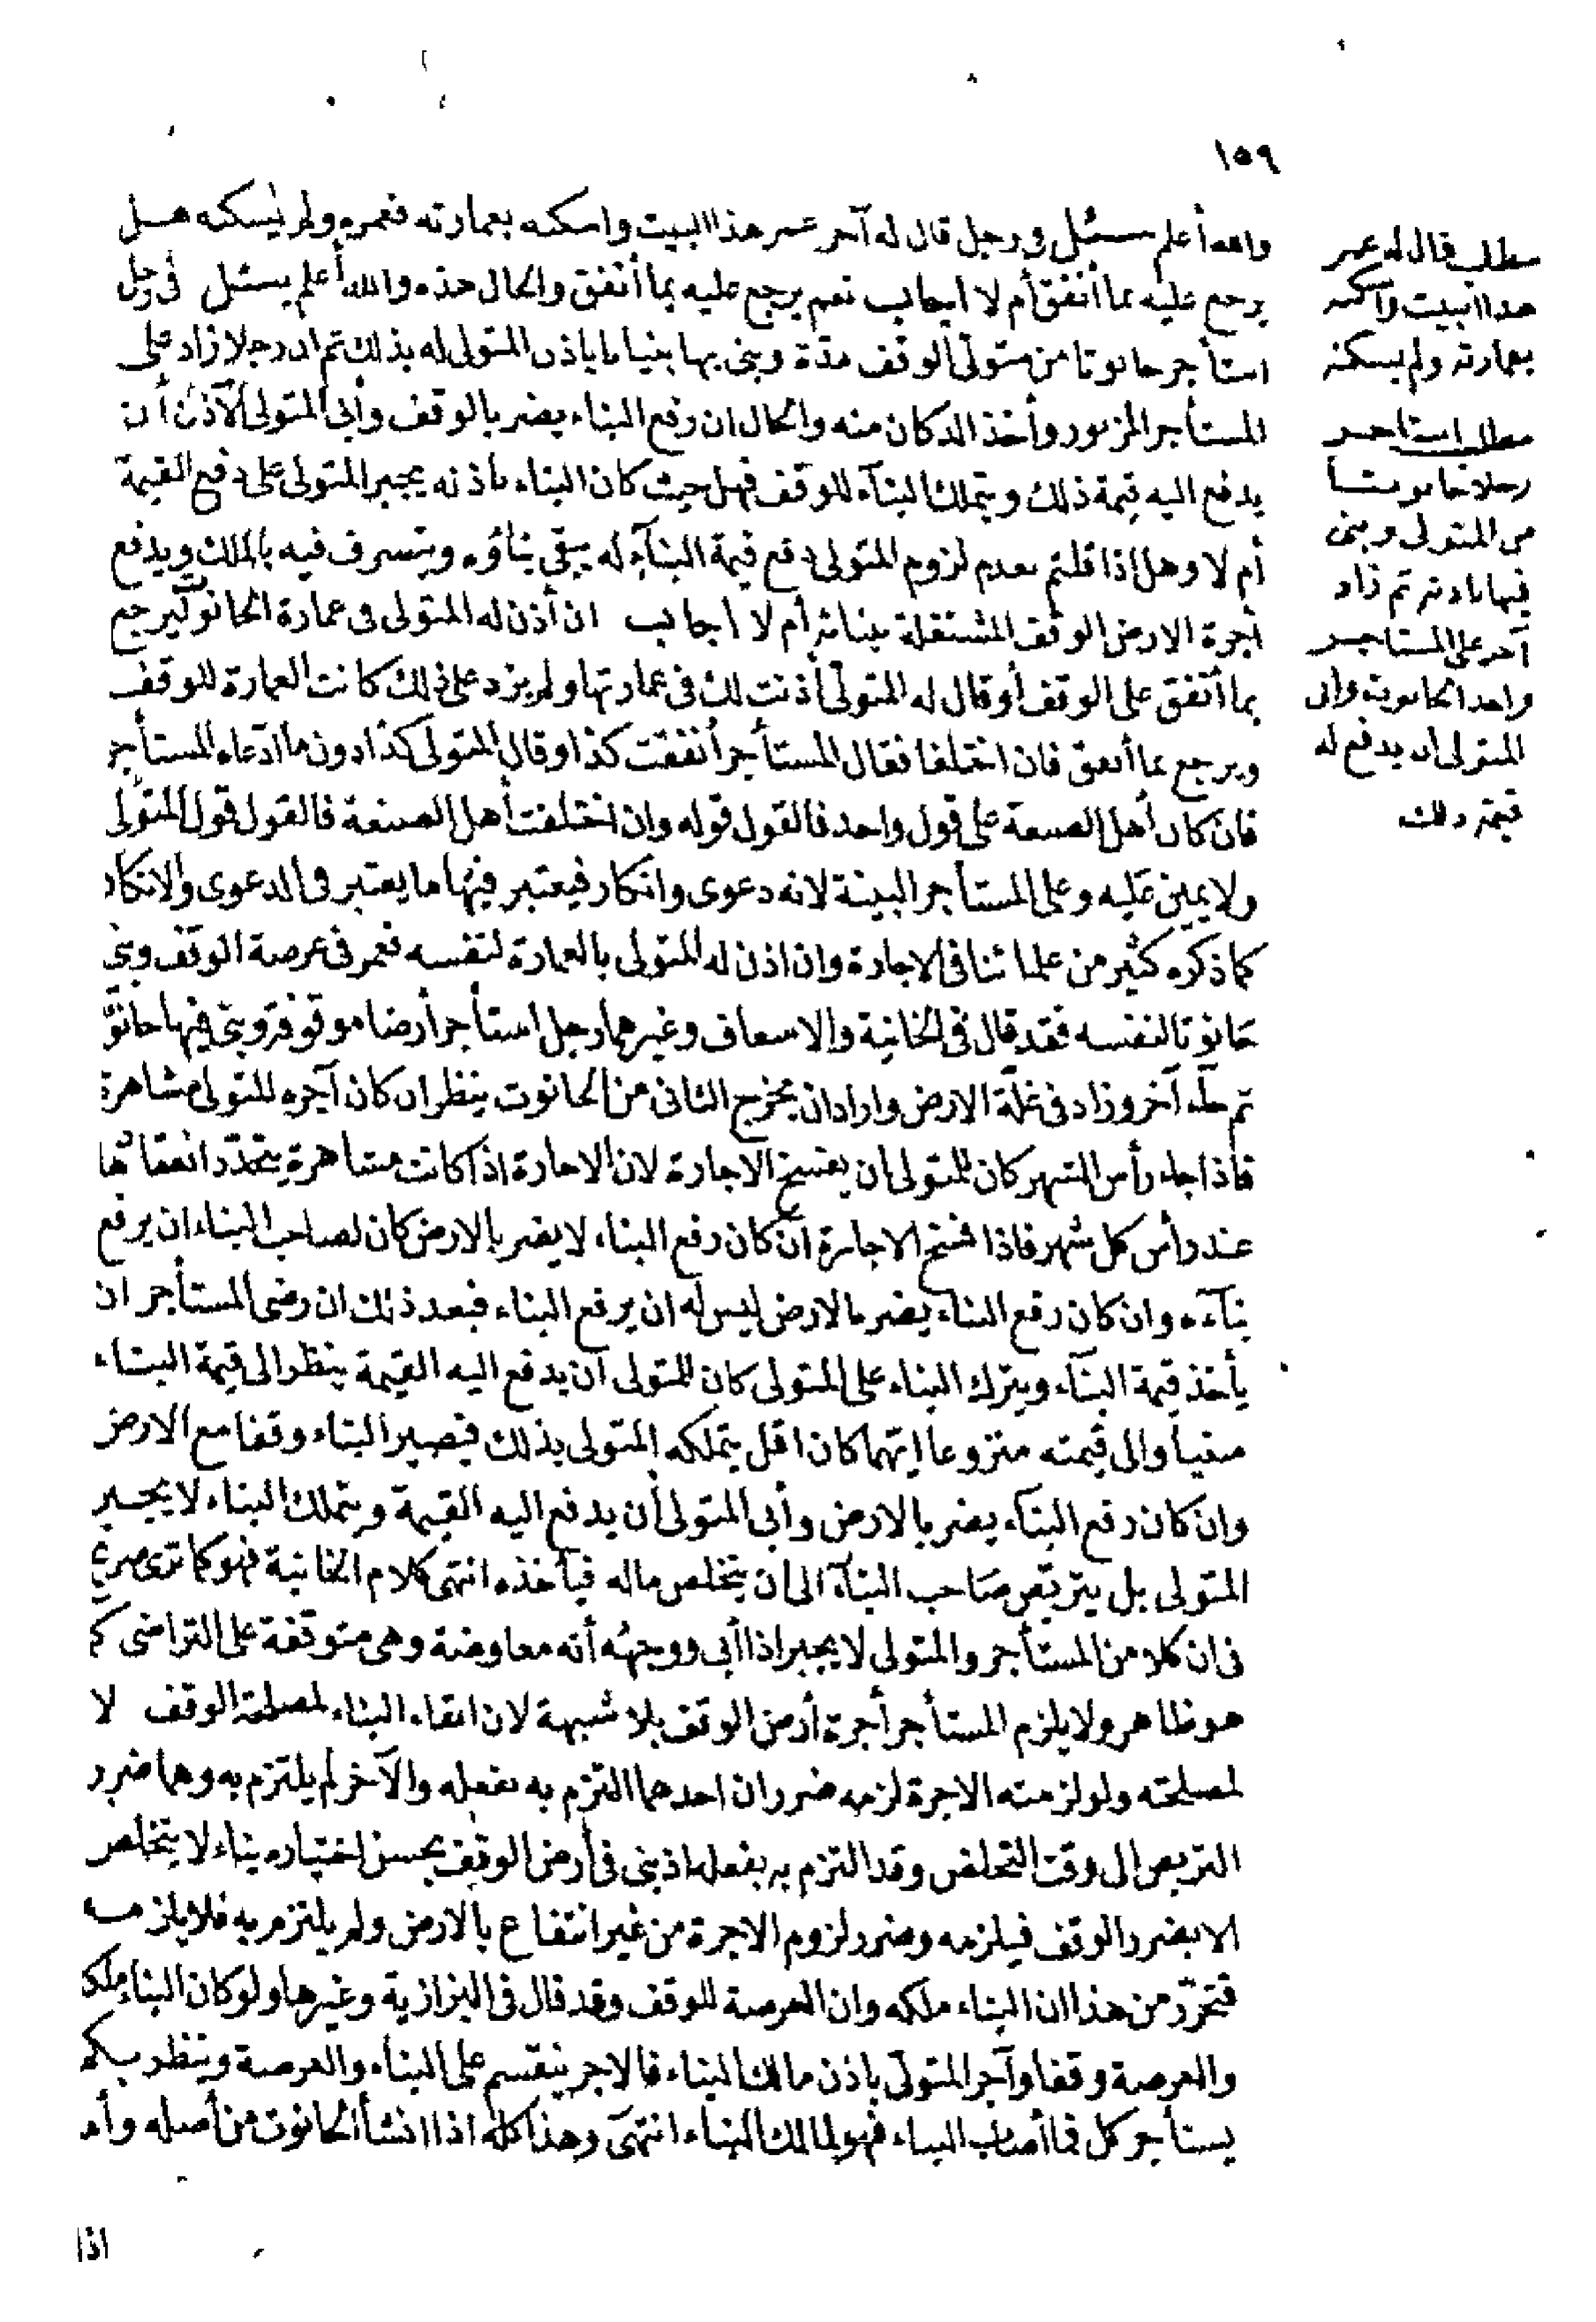 ١٥٩
والله أعلم سئل في رجل قال له آخر عمر هذا البيت واسكنه بعمارته فعمره ولم يسكنه هل
يرجع عليه بما أنفق أم لا اجاب نعم يرجع عليه بما أنفق والحال هذه والله أعلم سئل في رجل
استأجر حانوتا من متولي الوقف مدة وبنى بها بنيانا باذن المتولي له بذلك ثم ان رجلا زاد على
المستأجر المزبور وأخذ الدكان منه والحال ان رفع البناء يضر بالوقف وأبى المتولي الآذن أن
يدفع اليه قيمة ذلك ويتملك البنآء للوقف فهل حيث كان البناء باذنه يجبر المتولى على دفع القيمة
أم لا وهل اذا قلتم بعدم لزوم المتولى دفع قيمة البنآء له يبقى بناؤه ويتصرف فيه بالملك ويدفع
أجرة الارض الوقف المشتغلة ببنائه أم لا اجاب ان أذن له المتولى فى عمارة الحانوت ليرجع
بما أنفق على الوقف أو قال له المتولى أذنت لك فى عمارتها ولم يزد على ذلك كانت العمارة للوقف
ويرجع بما أنفق فان اختلفا فقال المستأجر أنفقت كذا وقال المتولى كذا دون ما ادعاه المستأجر
فان كان أهل الصنعة على قول واحد فالقول قوله وان اختلفت أهل الصنعة فالقول قول المتولى
ولا يمين عليه وعلى المستأجر البينة لانه دعوى وانكار فيعتبر فيها ما يعتبر فى الدعوى والانكار
كما ذكره كثير من علمائنا فى الاجارة وان اذن له المتولى بالعمارة لنفسه فعمر فى عرصة الوقف وبنى
حانوتا لنفسه فقد قال فى الخانية والاسعاف وغيرهما رجل استأجر أرضا موقوفة وبنى فيها حانوتا
ثم جآء آخر وزاد فى غلة الارض واراد ان يخرج الثانى من الحانوت ينظر ان كان آجره المتولى مشاهرة
فاذا جاء رأس الشهر كان للمتولى ان يفسخ الاجارة لان الاجارة اذا كانت مشاهرة يتجدد انعقادها
عند رأس كل شهر فاذا فسخ الاجارة ان كان رفع البناء لا يضر بالارض كان لصاحب البناء ان يرفع
بنآءه وان كان رفع البناء يضر بالارض ليس له ان يرفع البناء فبعد ذلك ان رضى المستأجر ان
يأخذ قيمة البنآء ويترك البناء على المتولى كان للمتولى أن يدفع اليه القيمة ينظر الى قيمة البناء
مبنيا والى قيمته منزوعا ايهما كان اقل يتملكه المتولى بذلك فيصير البناء وقفا مع الارض
وان كان رفع البنآء يضر بالارض وأبى المتولى أن يدفع اليه القيمة ويتملك البناء لا يجبر
المتولى بل يتربص صاحب البنآء الى ان يتخلص ماله فيأخذه انتهى كلام الخانية فهو كما ترى صريح
فى ان كلا من المستأجر والمتولى لا يجبر اذا أبى ووجهه أنه معاوضة وهى متوقفة على التراضى كما
هو ظاهر ولا يلزم المستأجر أجرة أرض الوقف بلا شبهة لان ابقاء البناء لمصلحة الوقف لا
لمصلحته ولو لزمته الاجرة لزمه ضرران احدهما التزم به بفعله والآخر لم يلتزم به وهما ضرر
التربص الى وقت التخلص وقد التزم به بفعله اذ بنى فى أرض الوقف بحسن اختياره بناء لا يتخلص
الا بضرر الوقف فيلزمه وضرر لزوم الاجرة من غير انتفاع بالارض ولم يلتزم به فلا يلزمه
فتحرر من هذا ان البناء ملكه وان العرصة للوقف وقد قال فى البزازية وغيرها ولو كان البناء ملكا
والعرصة وقفا وآجر المتولى باذن مالك البناء فالاجر ينقسم على البناء والعرصة وينظر بكم
يستأجر كل فما أصاب البناء فهو لمالك البناء انتهى وهذا كله اذا انشأ الحانوت من أصله وأما
اذا
مطلب قال له عمر
هذا البيت واسكنه
بعمارته ولم يسكنه
مطلب استاجر
رجلا حانوتا
من المتولى وبنى
فيها باذنه ثم زاد
آخر على المستاجر
واخذ الحانوت وابى
المتولى ان يدفع له
قيمة ذلك